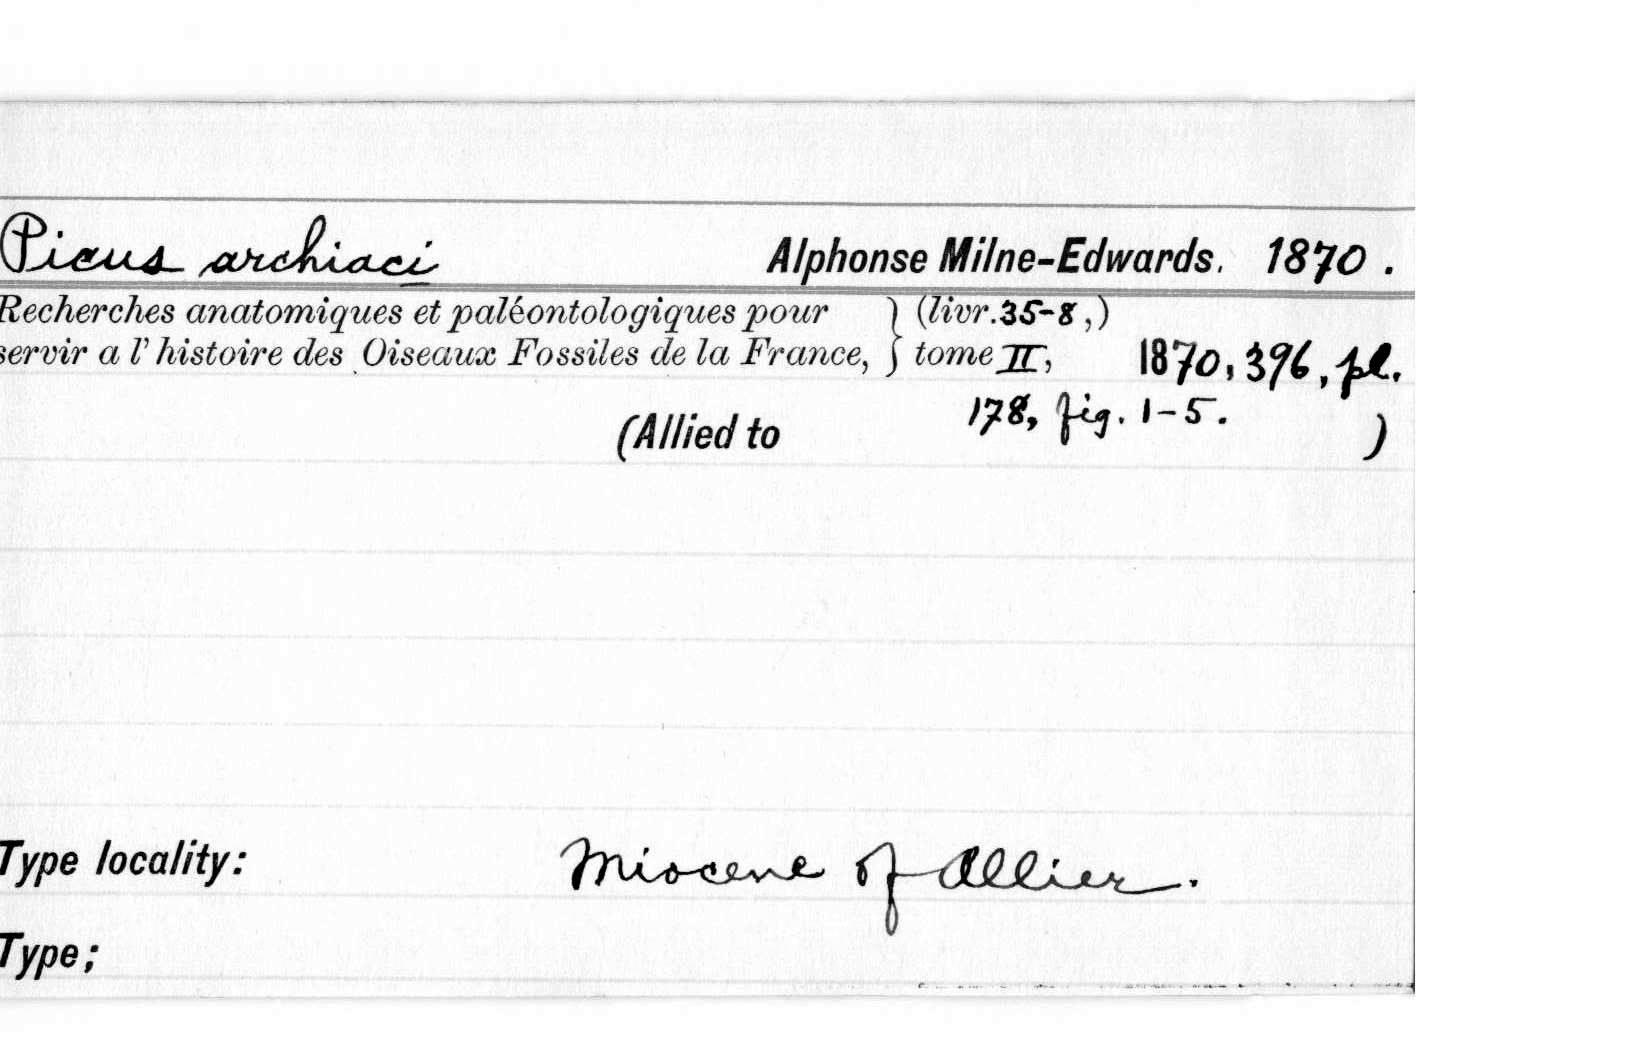 Picus archiaci Alphonse Milne-Edwards. 1870.
Recherches anatomiques et paléontologiques pour } (livr.35-8,)
servir a l'histoire des Oiseaux Fossiles de la France, } tome II, 1870, 396, pl.
178, fig. 1-5.
(Allied to )
Type locality: Miocene of Allier.
Type;